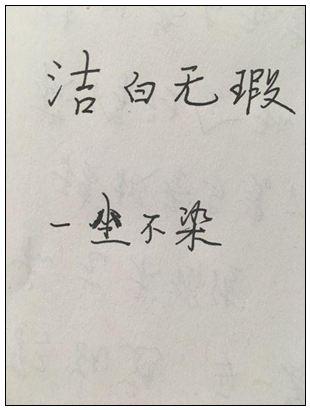 洁白无瑕
一尘不染